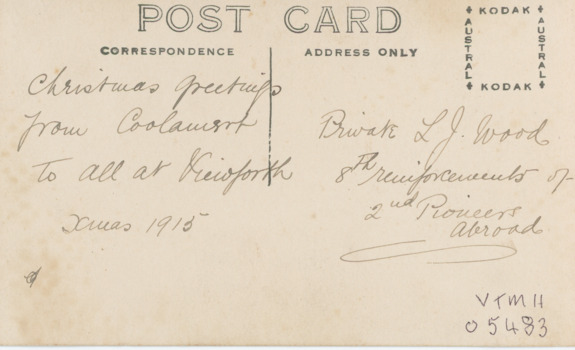 POST CARD
CORRESPONDENCE
ADDRESS ONLY
KODAK
AUSTRAL
AUSTRAL
KODAK
Christmas Greetings
from Coolamert
To all at Viewforth
Xmas 1915
Private L J. Wood
8th reinforcements of
2nd Pioneers
Abroad
VTMH
05483